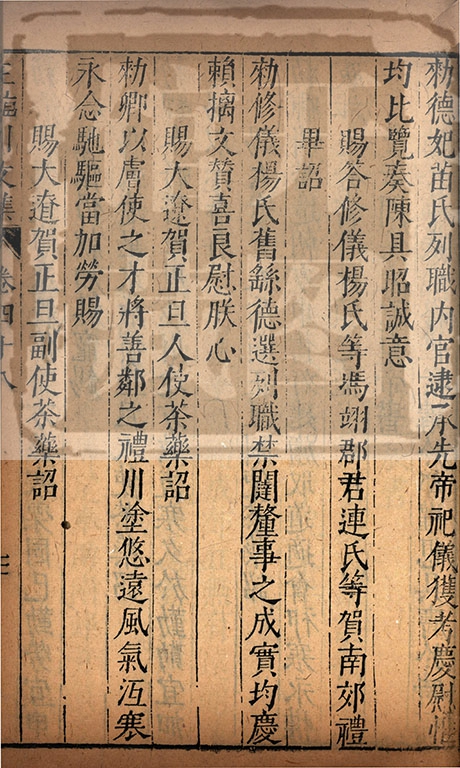 勑德妃苗氏列職内官逮承先帝祀儀獲考慶慰惟
均比覽奏陳具昭誠意
賜答修儀楊氏等馮翊郡君連氏等賀南郊禮
畢詔
勑修儀楊氏舊繇德選列職禁闥釐事之成實均慶
賴摛文贊喜良慰朕心
賜大遼賀正旦人使茶藥詔
勑卿以膚使之才將善鄰之禮川塗悠遠風氣冱寒
永念馳驅當加勞賜
賜大遼賀正旦副使茶藥詔
王臨川文集 卷四十八